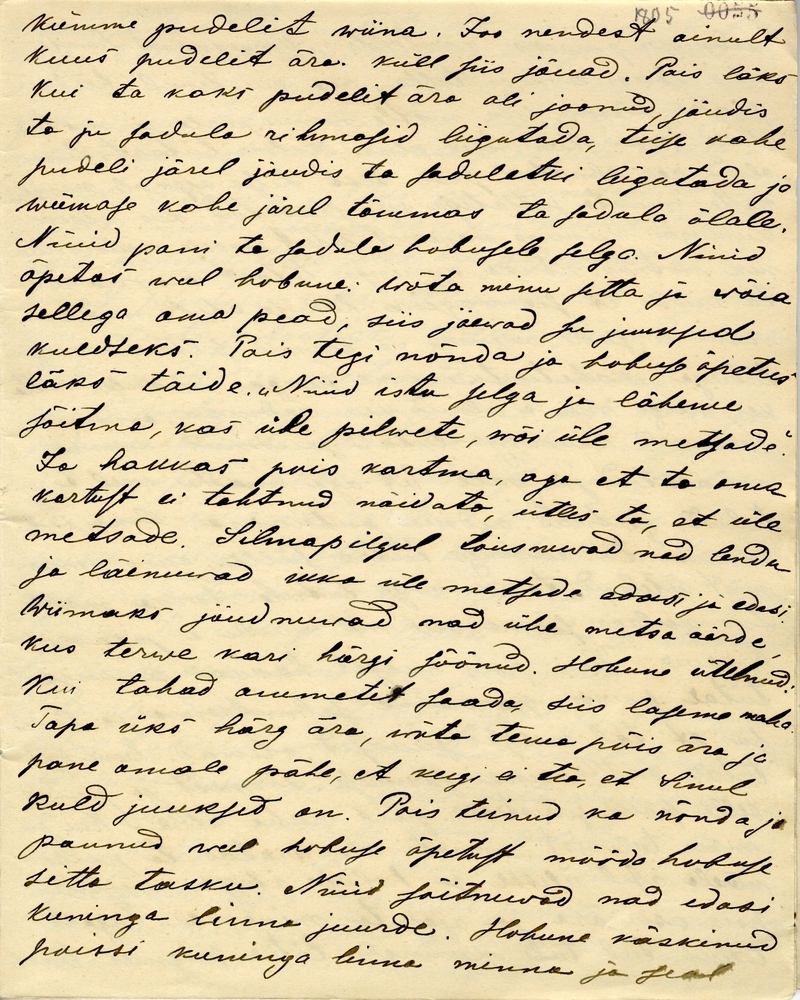 1805 0055
kümme pudelit wiina. Joo nendest ainult
kuus pudelit ära. Küll siis jõuad. Pois läks
Kui ta kaks pudelit ära oli joonud, jõudis
ta ju sadula rihmasid liigutada, teise kahe
pudeli järel jõudis ta saduletki liigutada ja
wiimase kahe järel tõmmas ta sadula õlale.
Nüüd pani ta sadula hobusele selga. Nüüd
õpetas weel hobune: wõta minu sitta ja wõia
sellega oma pead, siis jäewad su juuksed
kuldseks. Pois tegi nõnda ja hobuse õpetus
läks täide. „Nüüd istu selga ja läheme
sõitma, kas üle pilwete, wõi üle metsade“.
Ja hakkas pois kartma, aga et ta oma
kartust ei tahtnud näidata, ütles ta, et üle
metsade. Silmapilgul tõusnuwad nad lendu
ja läinuwad ikka üle metsade edasi ja edasi.
Wiimaks jõudnuwad nad ühe metsa äärde,
kus terwe kari härgi söönud. Hobune ütelnud:
Kui tahad ammetit saada, siis laseme maha.
Tapa üks härg ära, wõta tema põis ära ja
pane omale pähe, et keegi ei tea, et Sinul
kuld juuksed on. Pois teinud ka nõnda ja
pannud weel hobuse õpetust mööda hobuse
sitta tasku. Nüüd sõitnuwad nad edasi
kuninga linna juurde. Hobune käskinud
poissi kuninga linna minna ja seal